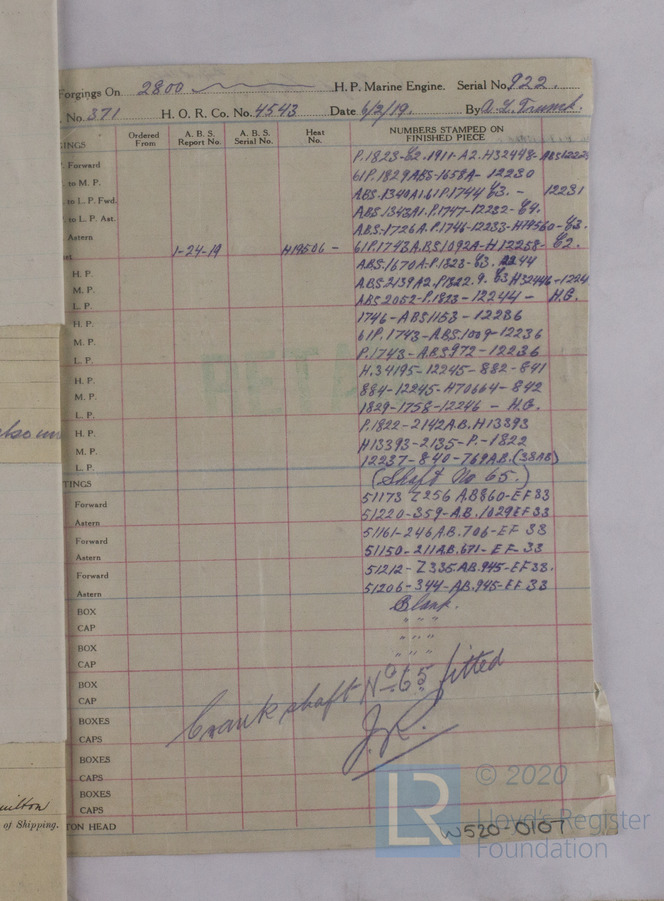 Forgings On 2800 H. P. Marine Engine. Serial No. 922.
No. 371 H. O. R. Co. No. 4543 Date 6/2/19. By
INGS Ordered From A. B. S. Report No. A. B. S. Serial No. Heat No. NUMBERS STAMPED ON FINISHED PIECE
Forward P.1823-E2.1911-A2.H32448-
to M. P. 61P.1829ABS-1658A-12230
to L. P. Fwd. ABS.1340A1.61P.1744 E3. - 12231
to L. P. Ast. P.1747-12232-E4.
Astern ABS.1726A.P.1746-12233-H19560-E3.
1-24-19 H19506 - 61P.1743A.B.S.1092A-H12258-E2.
H. P. ABS.1670A.P.1828-E3.
M. P. ABS.2139A2.P1822.9.E3H32446-1224
L. P. ABS.2052-P.1823-12244- H.G.
H. P. 1746-ABS1153-12236
M. P. 61P.1743-ABS.1009-12236
L. P. P.1743-ABS972-12236
H. P. H.34195-12245-882-841
M. P. 884-12245-H70664-842
L. P. 1829-1758-12246 - H.G.
H. P. P.1822-2142A.B.H13393
M. P. H13393-2135-P.-1822
L. P. 12237-840-769AB.(38AB)
TINGS (Shaft No 65.)
Forward 51173 Z256 AB860-EF33
Astern 51220-359-A.B.1029EF33
Forward 51161-246AB.706-EF 33
Astern 51150-211AB.671-EF-33
Forward 51212-Z335AB.945-EF33.
Astern 51206-344-AB.945-EF 33
BOX Blank.
CAP " " "
BOX " " "
CAP " " "
BOX
CAP
Crankshaft No 65 fitted
BOXES
CAPS J.R.
BOXES
CAPS
BOXES
CAPS
TON HEAD
milton
of Shipping.
RETA
W520-0107
LR
© 2020
Lloyd's Register
Foundation